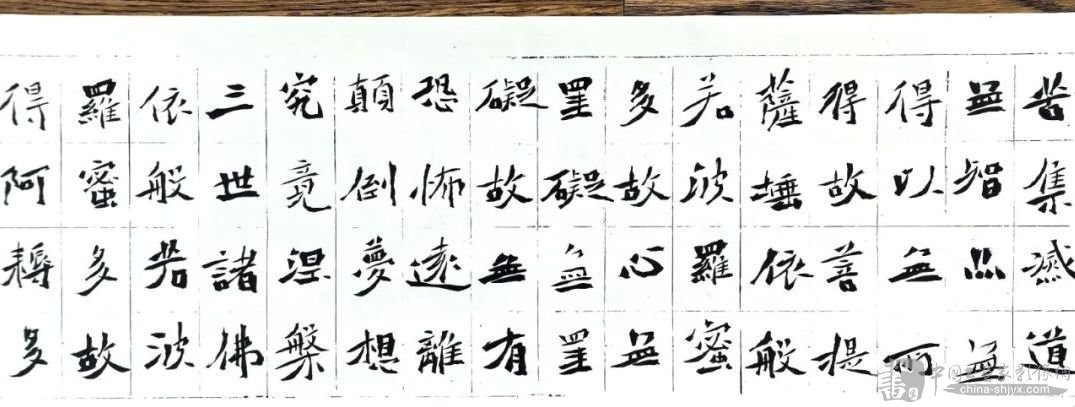 苦集滅道
無智亦無
得以無所
得故菩提
薩埵依般
若波羅蜜
多故心無
罣礙無罣
礙故無有
恐怖遠離
顛倒夢想
究竟涅槃
三世諸佛
依般若波
羅蜜多故
得阿耨多
china-shjyx.com